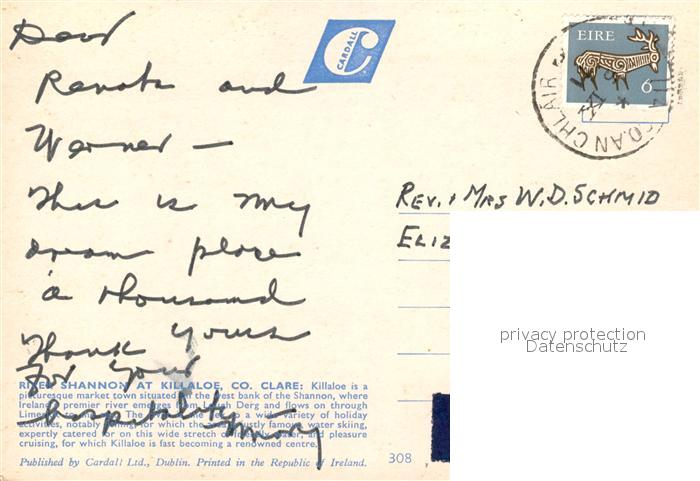 Dear
Renate and
Werner —
This is my
dream place
a thousand
Thank yours
for your
hospitality —
CARDALL
C
EIRE
6
CO. AN CHLAIR
REV. + MRS W. D. SCHMID
ELIZ
privacy protection
Datenschutz
RIVER SHANNON AT KILLALOE, CO. CLARE: Killaloe is a
picturesque market town situated on the west bank of the Shannon, where
Ireland's premier river emerges from Lough Derg and flows on through
variety of holiday
activities, notably fishing, for which the justly famous, water skiing,
expertly catered for on this wide stretch of and pleasure
cruising, for which Killaloe is fast becoming a renowned centre.
Published by Cardall Ltd., Dublin. Printed in the Republic of Ireland.
308